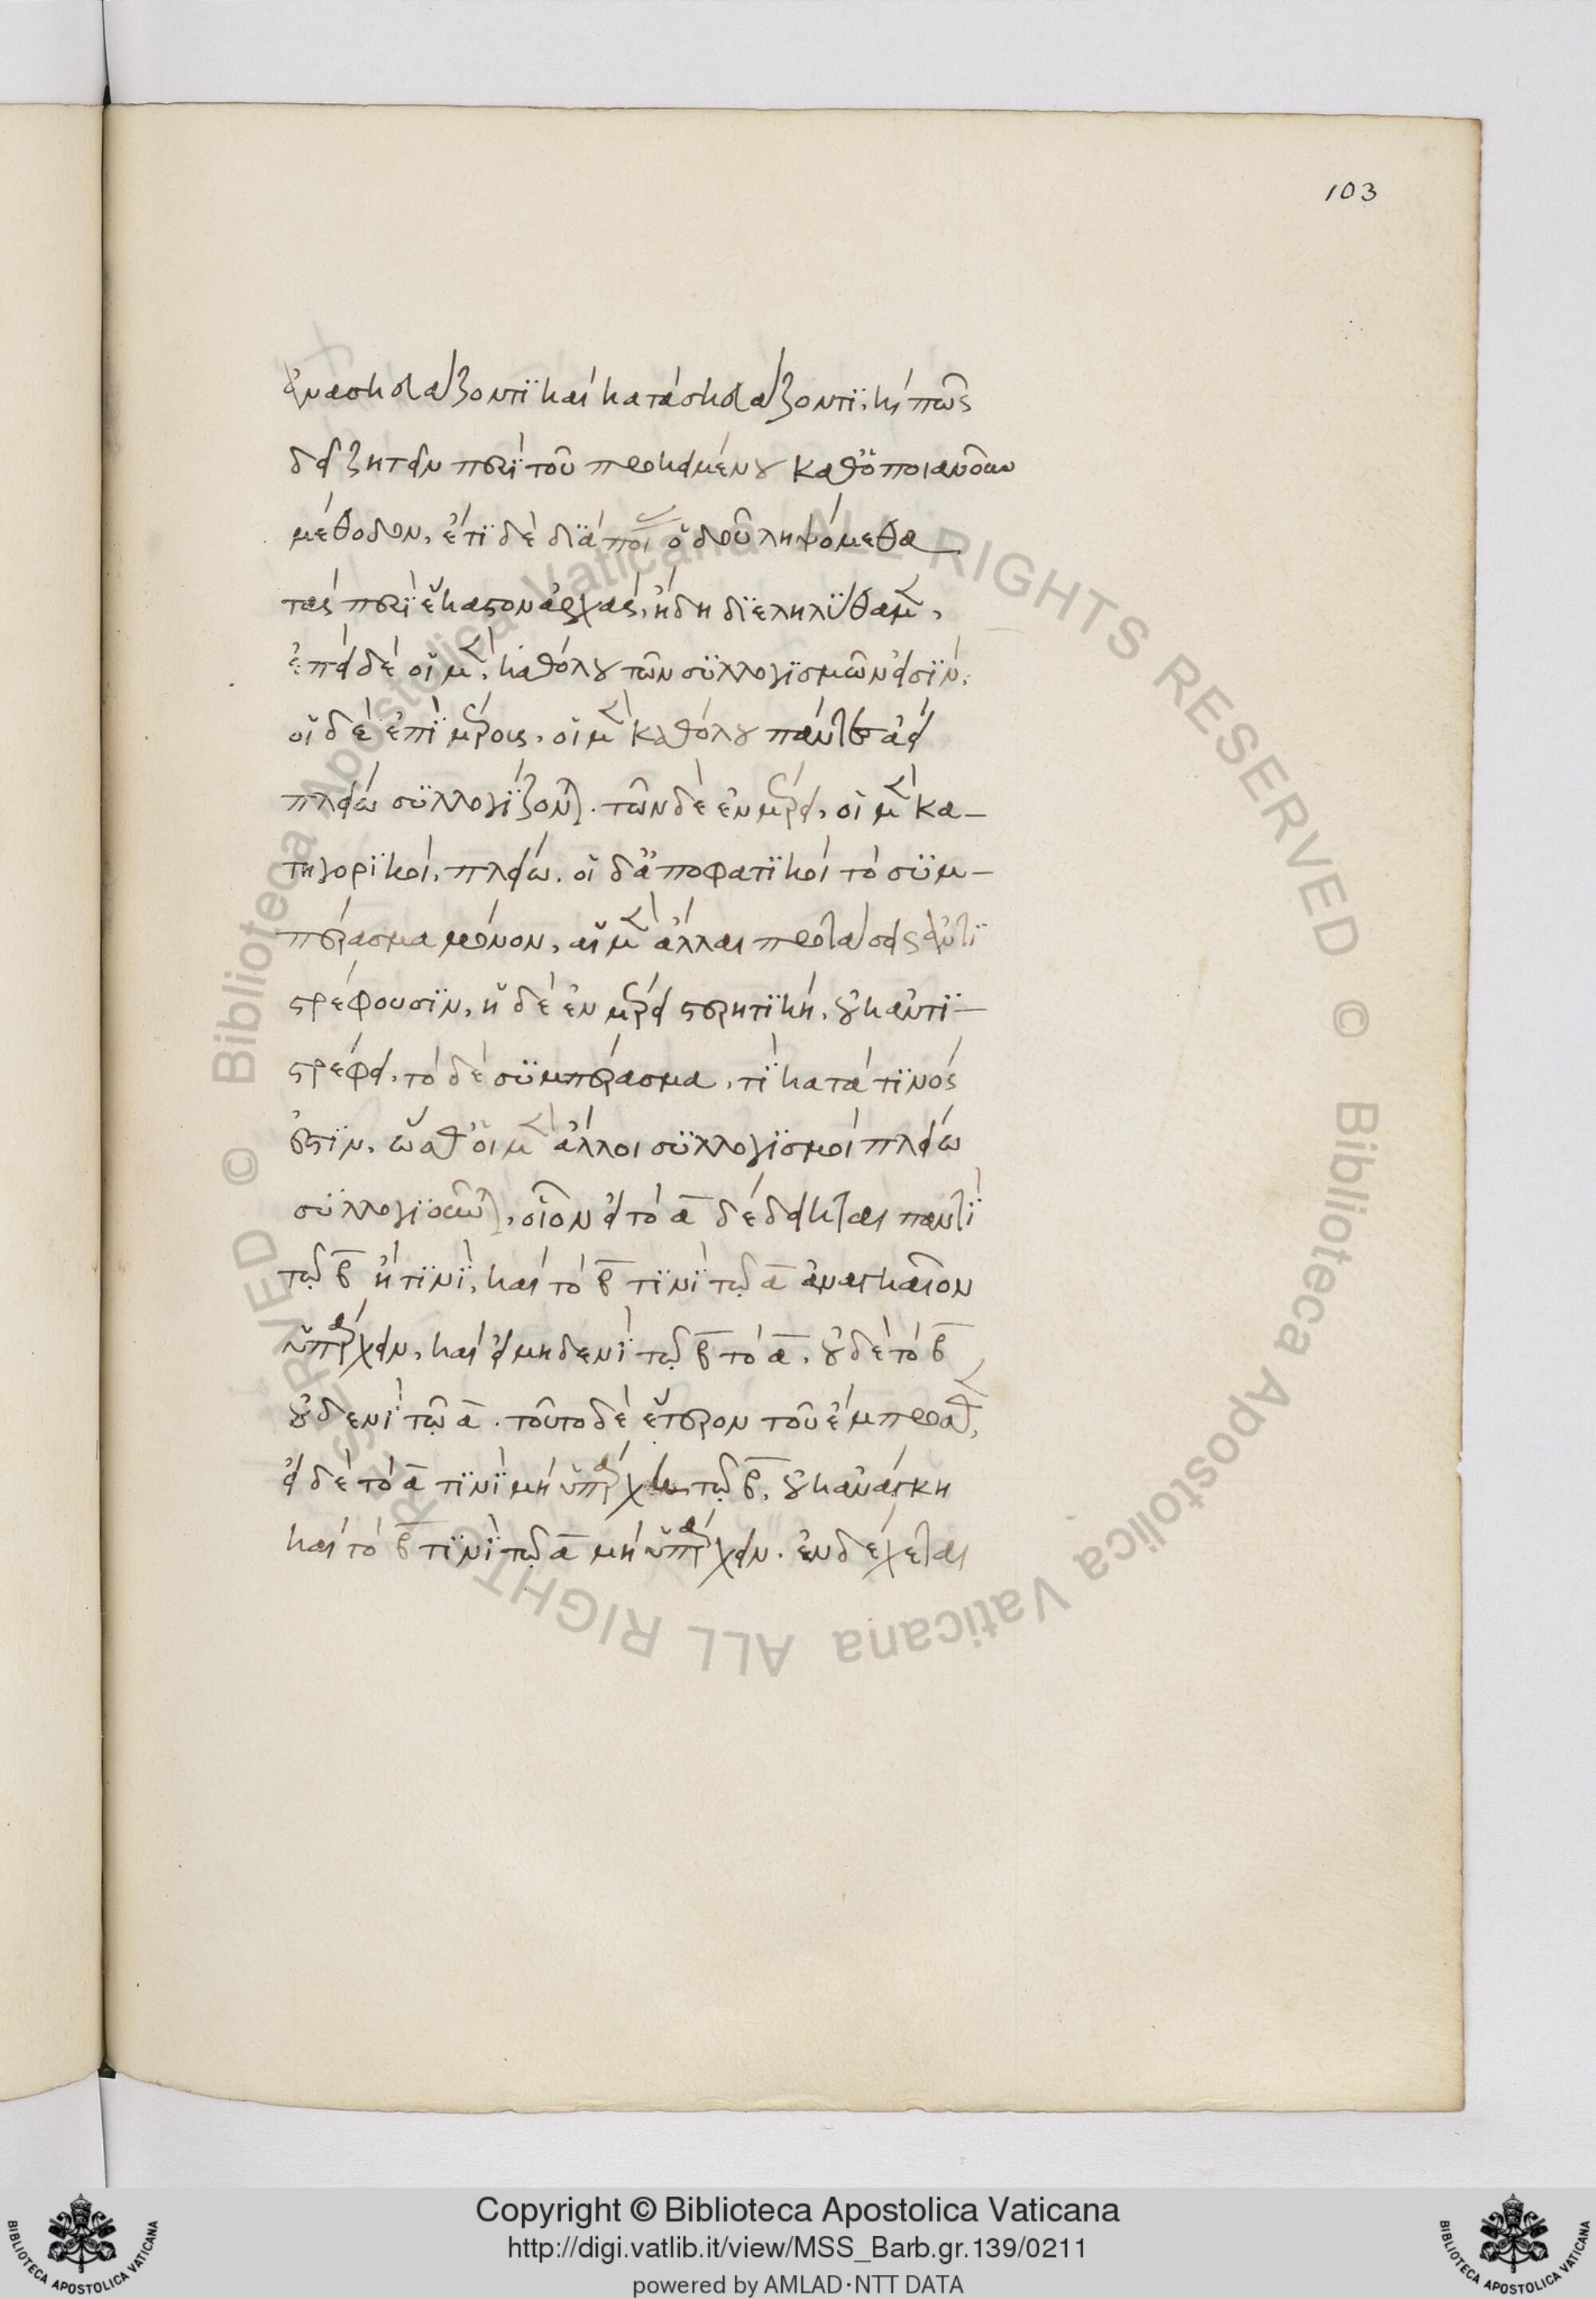 103
ἀνασκευάζοντι καὶ κατασκευάζοντι, καὶ πῶς
δεῖ ζητεῖν περὶ τοῦ προκειμένου καθ' ὁποιανοῦν
μέθοδον, ἔτι δὲ διὰ ποί ὁδοῦ ληψόμεθα
τὰς περὶ ἕκαστον ἀρχὰς, ἤδη διεληλύθαμεν,
ἐπεὶ δὲ οἱ μὲν, καθόλου τῶν συλλογισμῶν εἰσὶν,
οἱ δὲ ἐπὶ μέρους, οἱ μὲν καθόλου πάντες ἀεὶ
πλείω συλλογίζονται. τῶν δὲ ἐν μέρει, οἱ μὲν κα-
τηγορικοὶ, πλείω, οἱ δ' ἀποφατικοὶ τὸ συμ-
πέρασμα μόνον, αἱ μὲν ἄλλαι προτάσεις ἀντι
στρέφουσιν, ἡ δὲ ἐν μέρει στερητικὴ, οὐκ ἀντι-
στρέφει, τὸ δὲ συμπέρασμα, τὶ κατὰ τινός
ἐστιν, ὥσθ' οἱ μὲν ἄλλοι συλλογισμοὶ πλείω
συλλογίζονται, οἷον εἰ τὸ α δέδεικται παντὶ
τῷ β ἢ τινὶ, καὶ τὸ β τινὶ τῷ α ἀναγκαῖον
ὑπάρχειν, καὶ εἰ μηδενὶ τῷ β τὸ α, οὐδὲ τὸ β
οὐδενὶ τῷ α. τοῦτο δὲ ἕτερον τοῦ ἔμπροσθεν,
εἰ δὲ τὸ α τινὶ μὴ ὑπάρχει τῷ β, οὐκ ἀνάγκη
καὶ τὸ β τινὶ τῷ α μὴ ὑπάρχειν. ἐνδέχεται
© Biblioteca Apostolica Vaticana ALL RIGHTS RESERVED © Biblioteca Apostolica Vaticana ALL RIGHTS RESERVED
Copyright © Biblioteca Apostolica Vaticana
http://digi.vatlib.it/view/MSS_Barb.gr.139/0211
powered by AMLAD·NTT DATA
BIBLIOTECA APOSTOLICA VATICANA
BIBLIOTECA APOSTOLICA VATICANA